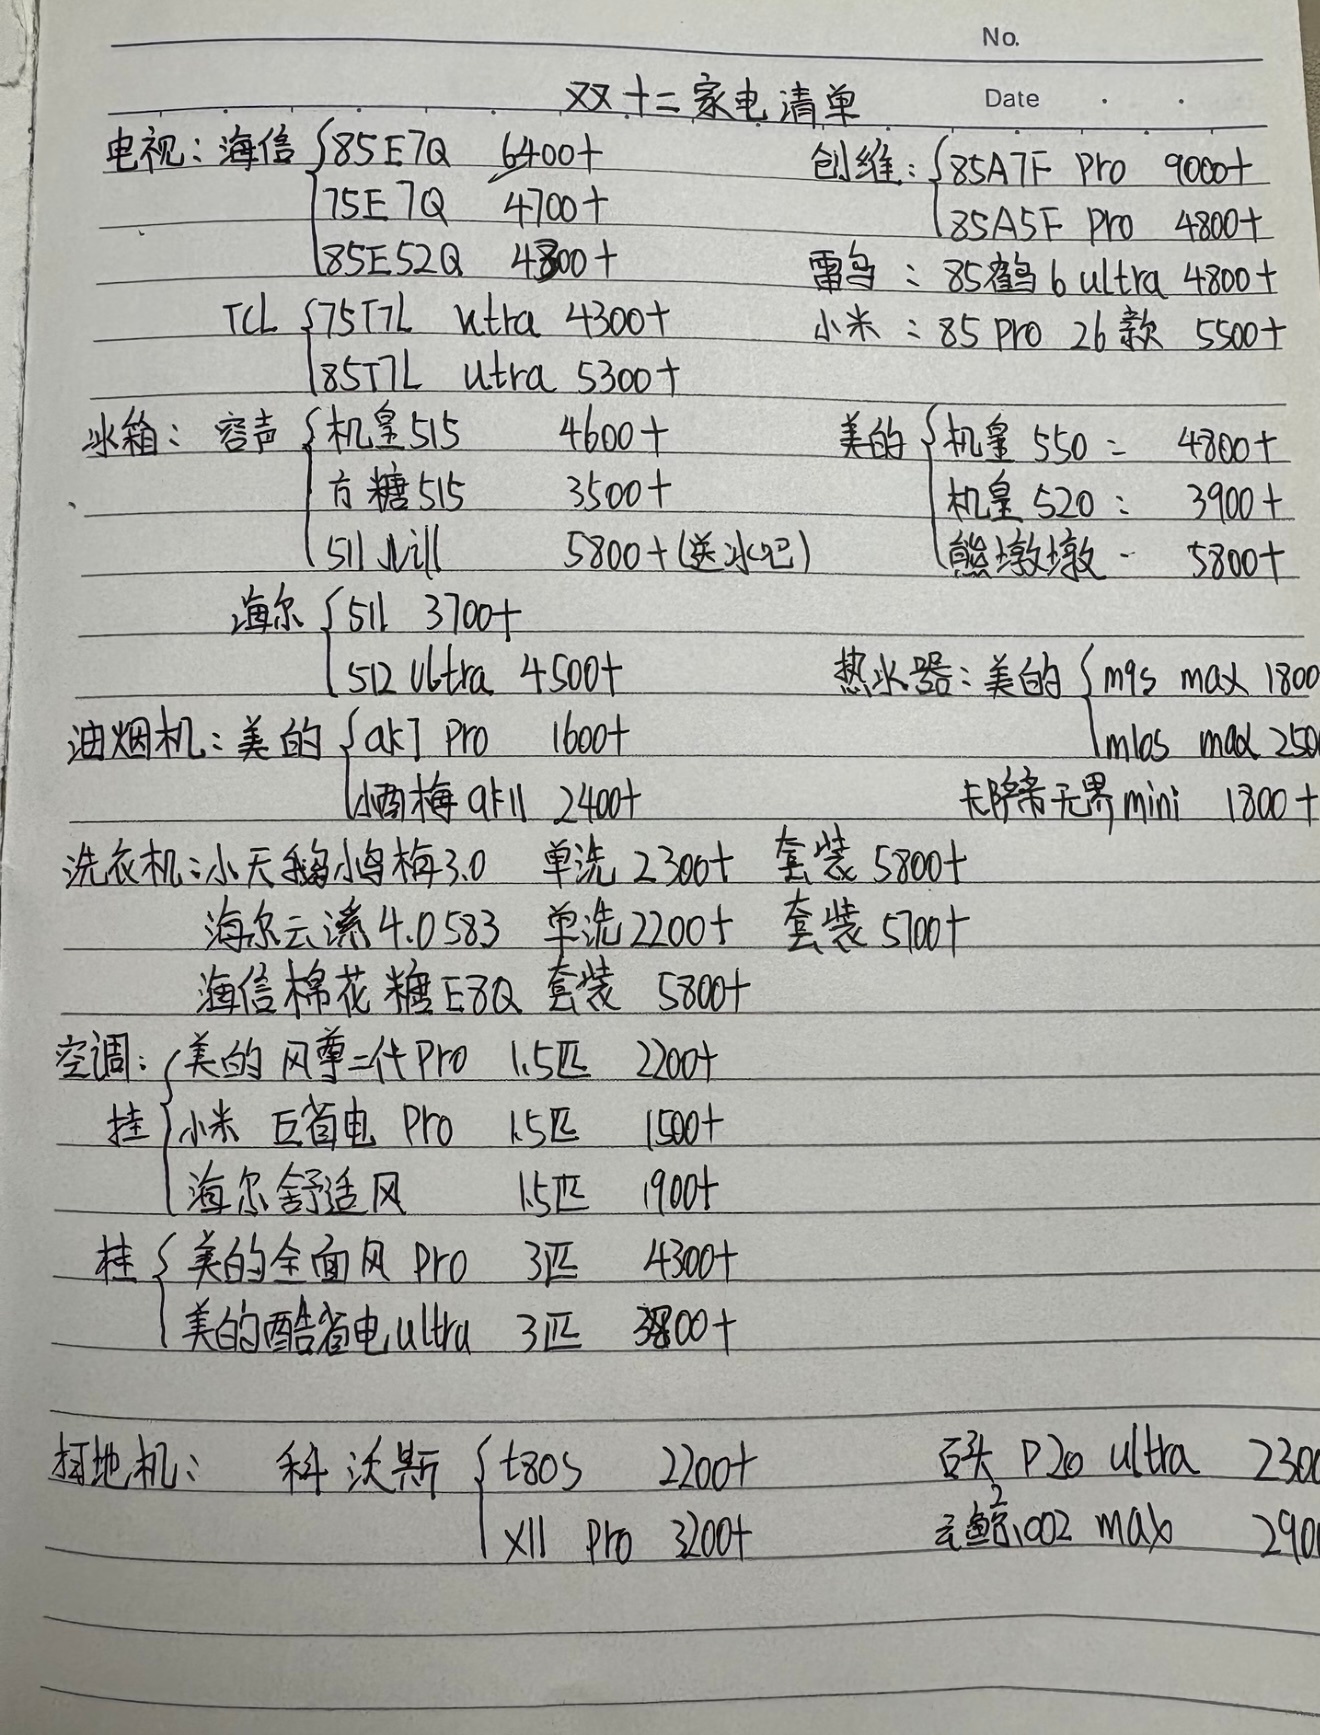 No.
双十二家电清单 Date
电视：海信 85E7Q 6400+ 创维：85A7F Pro 9000+
75E7Q 4700+ 85A5F Pro 4800+
85E52Q 4800+ 雷鸟：85鹤6 ultra 4800+
TCL 75T7L utra 4300+ 小米：85 pro 26款 5500+
85T7L utra 5300+
冰箱：容声 机皇515 4600+ 美的 机皇 550： 4800+
方糖515 3500+ 机皇 520： 3900+
511 5800+(送水吧) 熊墩墩 5800+
海尔 511 3700+
512 ultra 4500+ 热水器：美的 m9s max 1800
油烟机：美的 ak7 pro 1600+ m10s max 250
梅 ak11 2400+ 无界mini 1800+
洗衣机：小天鹅小乌梅3.0 单洗 2300+ 套装 5800+
海尔云溪4.0 583 单洗 2200+ 套装 5700+
海信棉花糖E8Q 套装 5800+
空调： 美的 风尊二代Pro 1.5匹 2200+
挂 小米 巨省电 Pro 1.5匹 1500+
海尔舒适风 1.5匹 1900+
柱 美的全面风 Pro 3匹 4300+
美的酷省电ultra 3匹 3800+
扫地机： 科沃斯 t80s 2200+ 石头 P20 ultra 2300
X11 pro 3200+ 云鲸 002 max 290